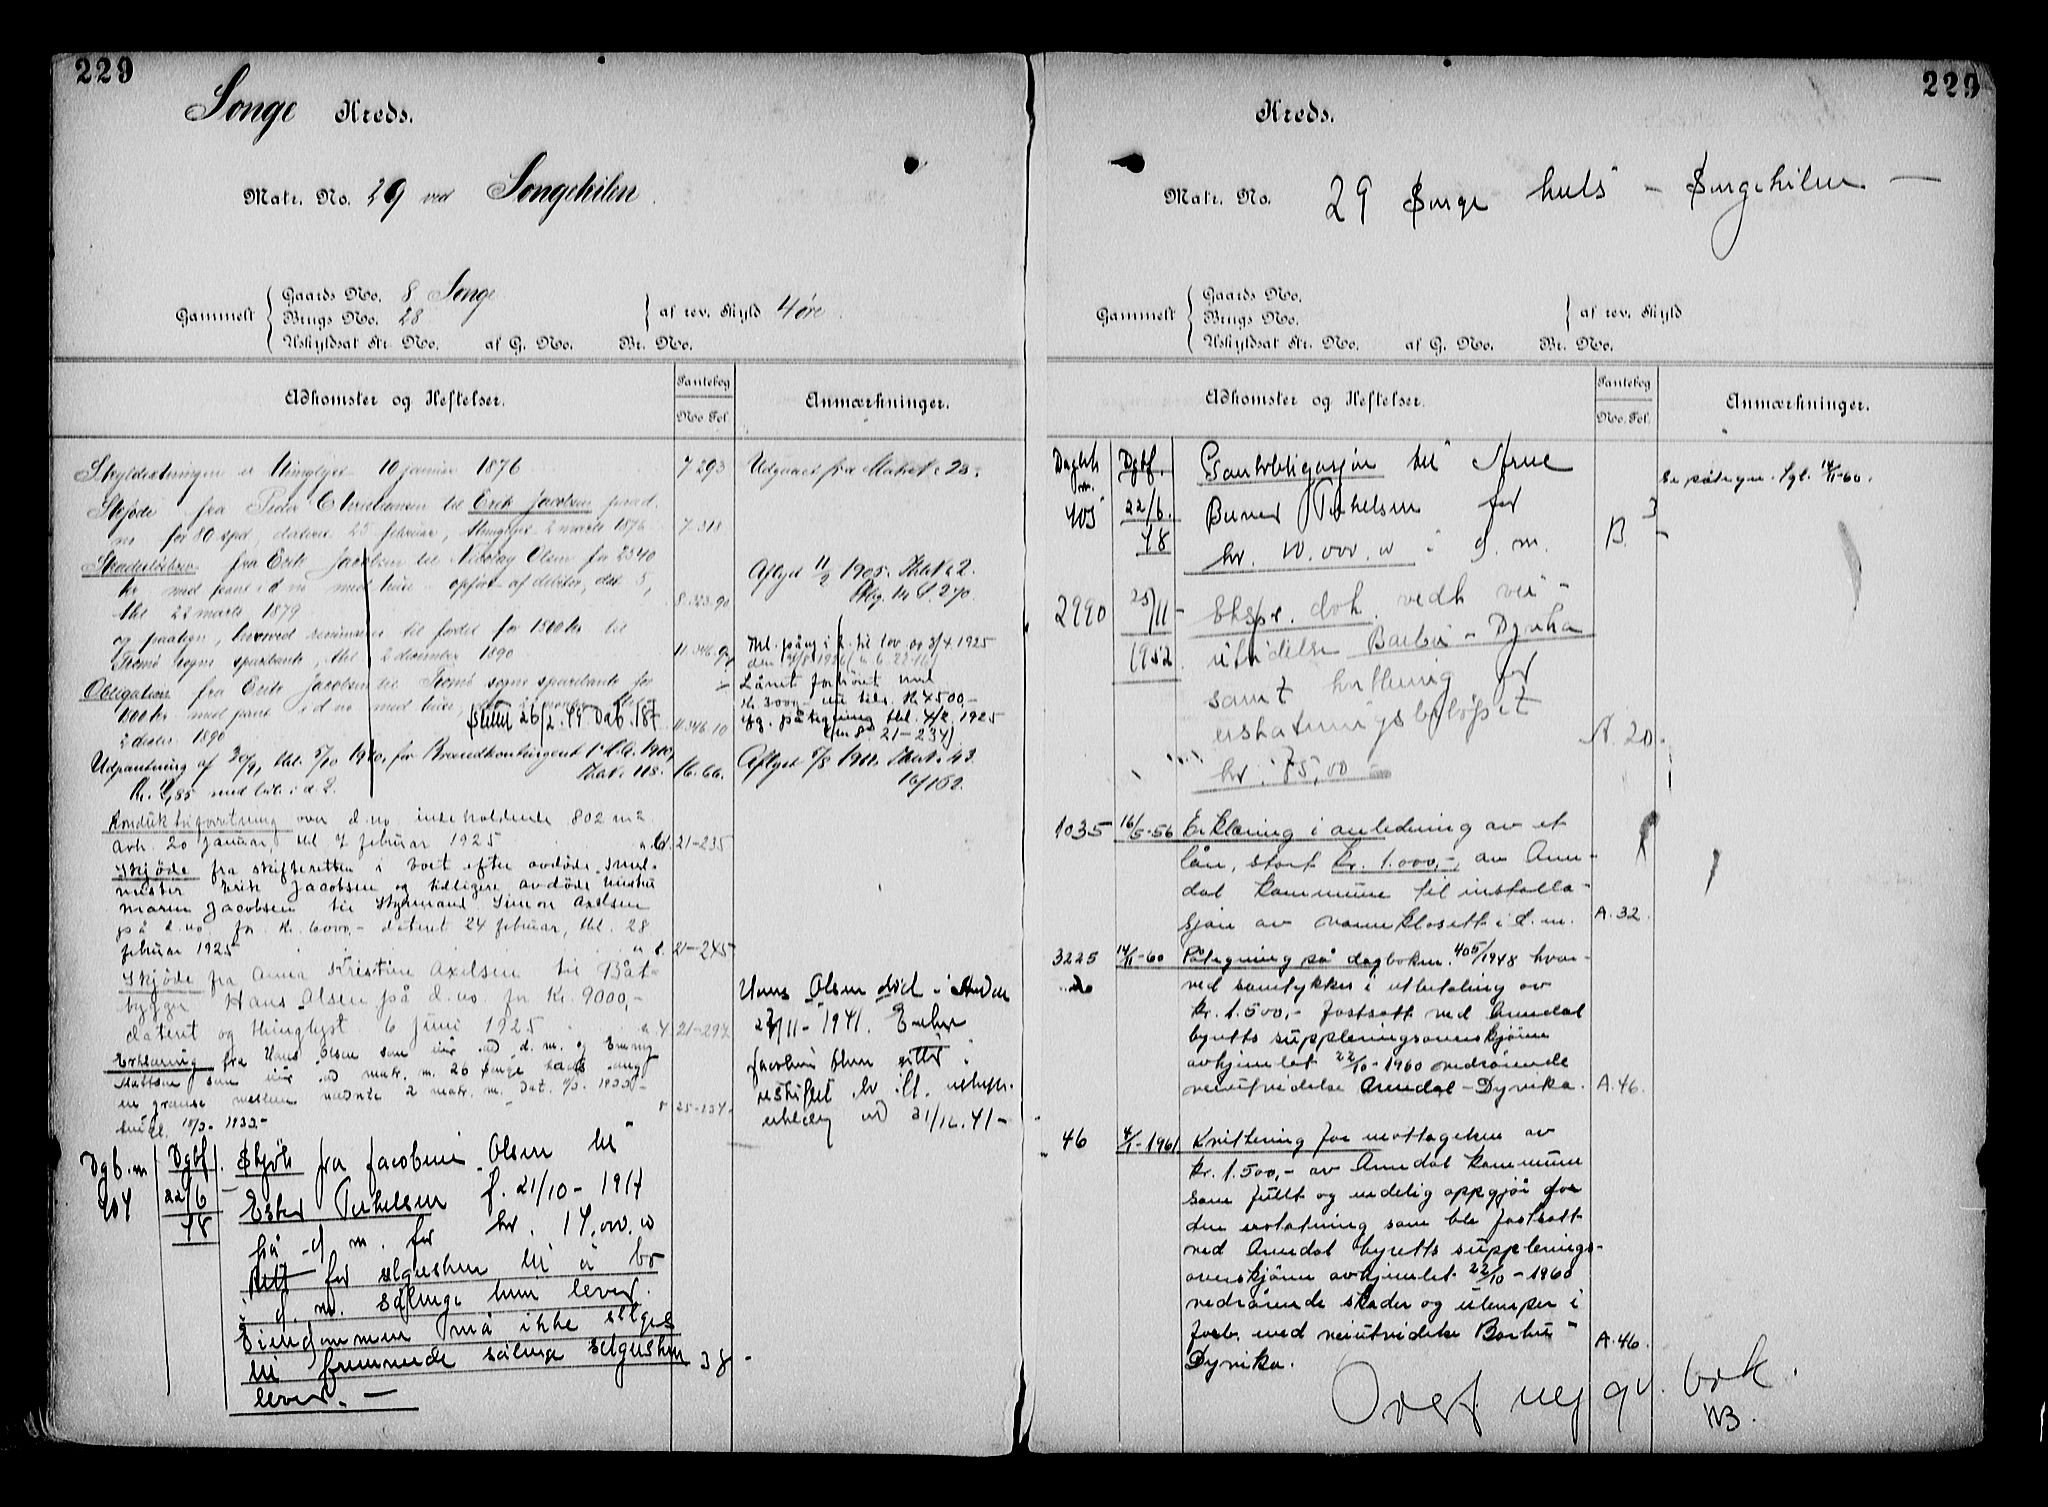 229
Songe Kreds.
Matr. No. 29 ved Songekilen.
Gammelt
Gaards No. 8 Songe
Brugs No. 28
Uskyldsat Str. No. af G. No. Br. No.
af rev. Skyld 4 øre.
Adkomster og Heftelser.
Pantebog
No. Fol.
Anmærkninger.
Skylddelingen er thinglyst 10 januar 1876 7 293
Udgaaet fra Matr. 23.
Skjøde fra Peder Christensen til Erik Jacobsen
for 80 spd, dateret 25 februar, thinglyst 2 marts 1876 7 318
Skadesløsbrev fra Erik Jacobsen til Nikolay Olsen for 2340
kr med pant i d no med huse opført af debitor, dat. 5,
thl 22 marts 1879 8.323.90
Aflyst 11/2 1905.
og paategn, hvorved til fordel for 1800 kr til
Tromø sogns sparebank, thl 2 december 1890 11.346.9
Obligation fra Erik Jacobsen til Tromø sogns sparebank for
1800 kr med pant i d no med huse,
2 decbr. 1890 11.346.10
Slettet 26/2.49. Dab. 187
Lånet forhöiet med
kr. 3000,- nu tils. kr 4500,-
flg. påtegning thl. 4/2 1925
21-234)
Udpantning af 20/9, thl. 5/10 1910, for Brandkontingent
Kr. 9,85 med beh. i d. 2. 16.66.
16/162.
Konduktörforretning over d. no. indeholdende 802 m2
avh. 20 januar, thl 7 februar 1925 21-235
Skjöde fra skifteretten i boet efter avdöde smed-
mester Erik Jacobsen og tidligere avdöde hustru
Maren Jacobsen til Styrmand Simon Axelsen
på d. no. for kr. 6000,- dateret 24 februar, thl. 28
februar 1925 21-245
Skjöde fra Anna Kristine Axelsen til Båt-
bygger Hans Olsen på d. no. for kr. 9000,-
dateret og thinglyst 6 juni 1925 21-297
Hans Olsen död i Arendal
27/11-1941. Enken
Jacobine Olsen sitter i
uskiftet bo
31/12.41-
Erklæring fra Hans Olsen som eier av d. m. og Emmy
Mattson som eier av matr. m. 26 Songe
en grense mellem nævnte 2 matr. m. Dat. 1933-
tingl. 18/3-1933- 25-134-
Dgb. m
404
Dgbf.
22/6
48
Skjöte fra Jacobine Olsen til
Ester Terkelsen f. 21/10-1917
på d m. for kr. 14.000.00
Rett for selgersken til å bo
i d. m. sålenge hun lever.
Eiendommen må ikke selges
til fremmede sålenge selgersken
lever. — 38-
229
Kreds.
Matr. No. 29 Songe
Gammelt
Gaards No.
Brugs No.
Uskyldsat Str. No. af G. No. Br. No.
af rev. Skyld
Adkomster og Heftelser.
Pantebog
No. Fol.
Anmærkninger.
Dagbok
nr.
405
Dgbf.
22/6
48
Pantobligasjon til Arne
Terkelsen for
kr. 10.000.00 i d. m. B. 3
Se påtegn. tgl. 14/11-60.
2990 25/11-1952 Ekspr. dok. vedk vei-
utvidelse Barbu-Dyvika
samt kvittering for
erstatningsbelöpet
kr. 75,00 A. 20.
1035 16/5-56 Erklæring i anledning av et
lån, stort kr. 1.000,-, av Aren-
dal kommune til installa-
sjon av vannklosett i d. m. A. 32.
3225 14/11-60 Påtegning på dagboknr. 405/1948 hvor-
ved samtykkes i utbetaling av
kr. 1.500,- fastsatt ved Arendal
byretts suppleringsoverskjönn
avhjemlet 22/10-1960 vedrörende
veiutvidelse Arendal-Dyvika. A.46.
46 4/1-1961 Kvittering for mottagelsen av
kr. 1.500,- av Arendal kommune
som fullt og endelig oppgjör for
den erstatning som ble fastsatt
ved Arendal byretts supplerings-
overskjönn avhjemlet 22/10-1960
vedrörende skader og ulemper i
forb. med veiutvidelse Barbu-
Dyvika. A.46.
Overf. ny gr. bok.